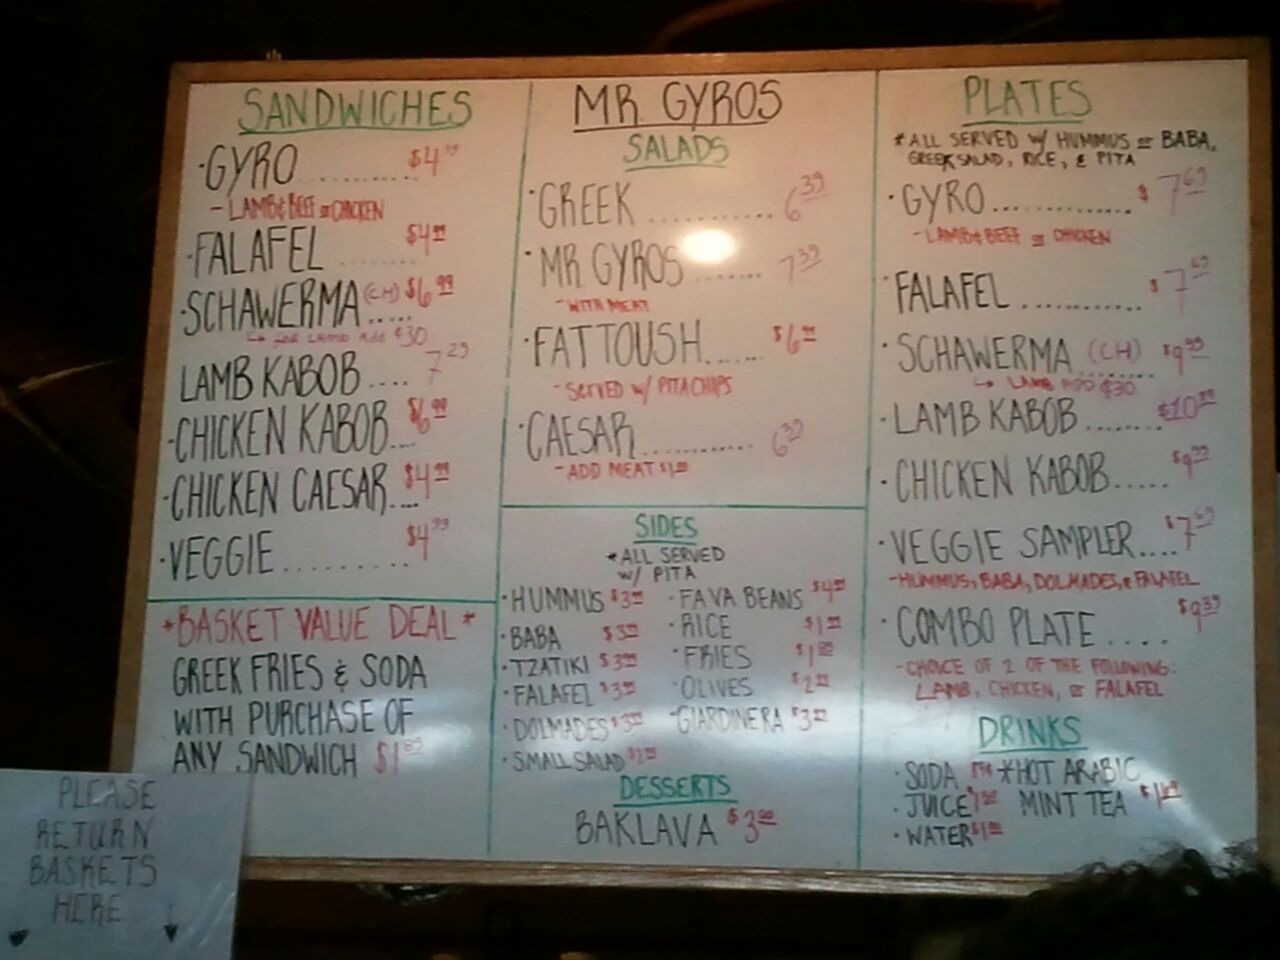 SANDWICHES
·GYRO .......... $4
- LAMB & BEEF or CHICKEN
·FALAFEL ....... $4.99
·SCHAWERMA (CH) $6.99
↳ FOR LAMB ADD $.30
LAMB KABOB .... 7.29
·CHICKEN KABOB.... $6.99
·CHICKEN CAESAR.... $4.99
·VEGGIE ......... $4.99
*BASKET VALUE DEAL*
GREEK FRIES & SODA
WITH PURCHASE OF
ANY SANDWICH $1
MR GYROS
SALADS
·GREEK ........... 6.39
·MR GYROS ....... 7.39
- WITH MEAT
·FATTOUSH....... $6.99
- SERVED W/ PITA CHIPS
·CAESAR........... 6.39
- ADD MEAT $1
SIDES
*ALL SERVED
W/ PITA
·HUMMUS $3
·BABA $3
·TZATIKI $3
·FALAFEL $3
·DOLMADES $3
·SMALL SALAD
·FAVA BEANS $4
·RICE $1
·FRIES $1
·OLIVES $2
·GIARDINERA $3
DESSERTS
BAKLAVA $3.00
PLATES
*ALL SERVED W/ HUMMUS or BABA,
GREEK SALAD, RICE, & PITA
·GYRO .............. $7.69
- LAMB & BEEF or CHICKEN
·FALAFEL ............ $7.69
·SCHAWERMA (CH) $9.99
↳ LAMB ADD $.30
·LAMB KABOB ....... $10
·CHICKEN KABOB..... $9.99
·VEGGIE SAMPLER.... $7.69
- HUMMUS, BABA, DOLMADES, & FALAFEL
·COMBO PLATE .... $9.39
- CHOICE OF 2 OF THE FOLLOWING:
LAMB, CHICKEN, or FALAFEL
DRINKS
·SODA
·JUICE
·WATER $1
*HOT ARABIC
MINT TEA $1
PLEASE
RETURN
BASKETS
HERE